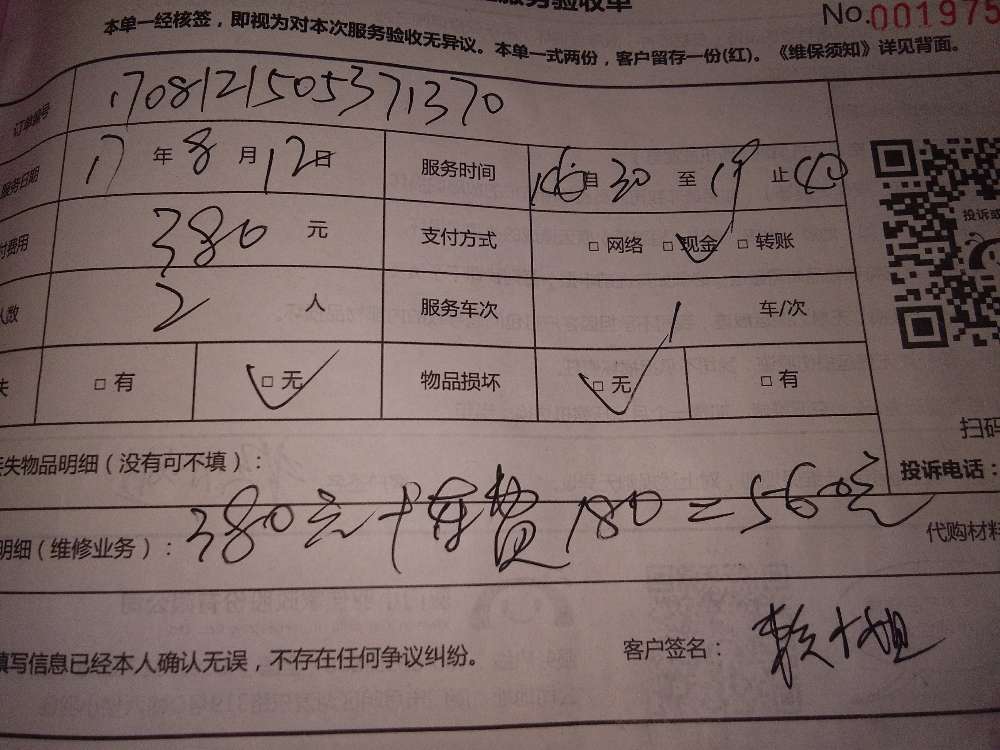 服务验收单
No.001975
本单一经核签，即视为对本次服务验收无异议。本单一式两份，客户留存一份(红)。《维保须知》详见背面。
订单编号 1708121505371370
服务日期 17 年 8 月 12 日 服务时间 16 自 30 至 19 止 40
付费用 380 元 支付方式 □ 网络 □ 现金 □ 转账
人数 2 人 服务车次 1 车/次
失 □ 有 □ 无 物品损坏 □ 无 □ 有
投诉或
扫码
投诉电话：
丢失物品明细（没有可不填）：
明细（维修业务）： 380元+存费180=560元
代购材料
填写信息已经本人确认无误，不存在任何争议纠纷。
客户签名： 赖大姐